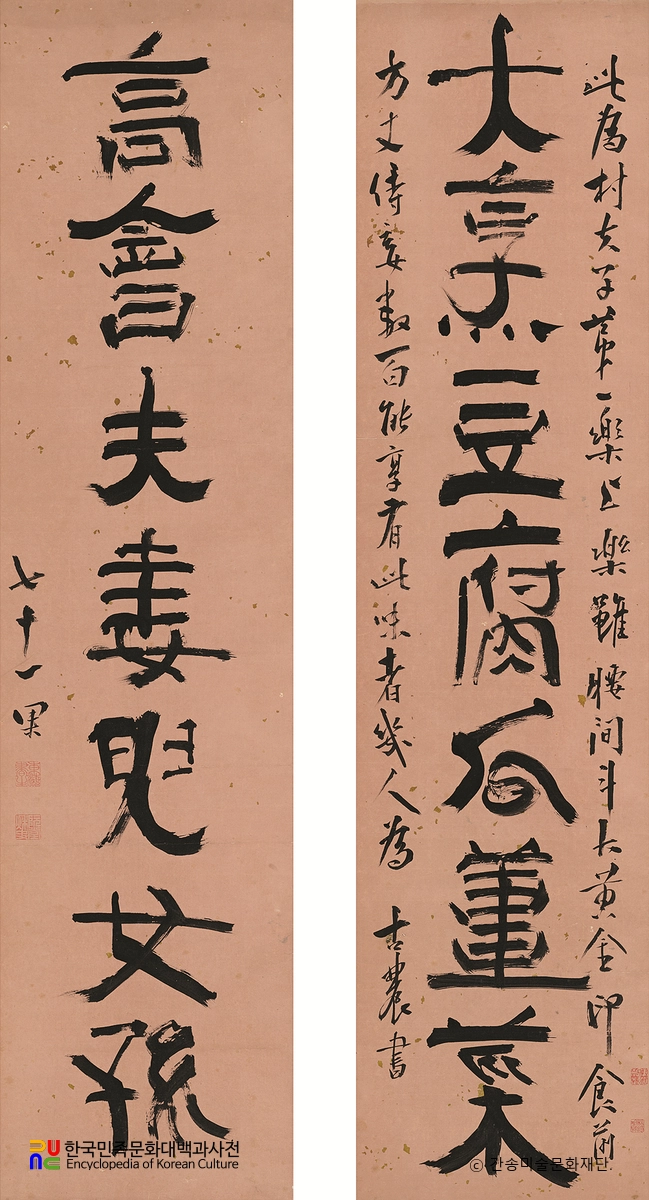 大烹豆腐瓜薑菜
此爲村夫子第一樂上樂雖腰間斗大黃金印食前
方丈侍妾數百能享有此味者幾人爲 古農書
高會夫妻兒女孫
七十一果
한국민족문화대백과사전
Encyclopedia of Korean Culture
© 간송미술문화재단